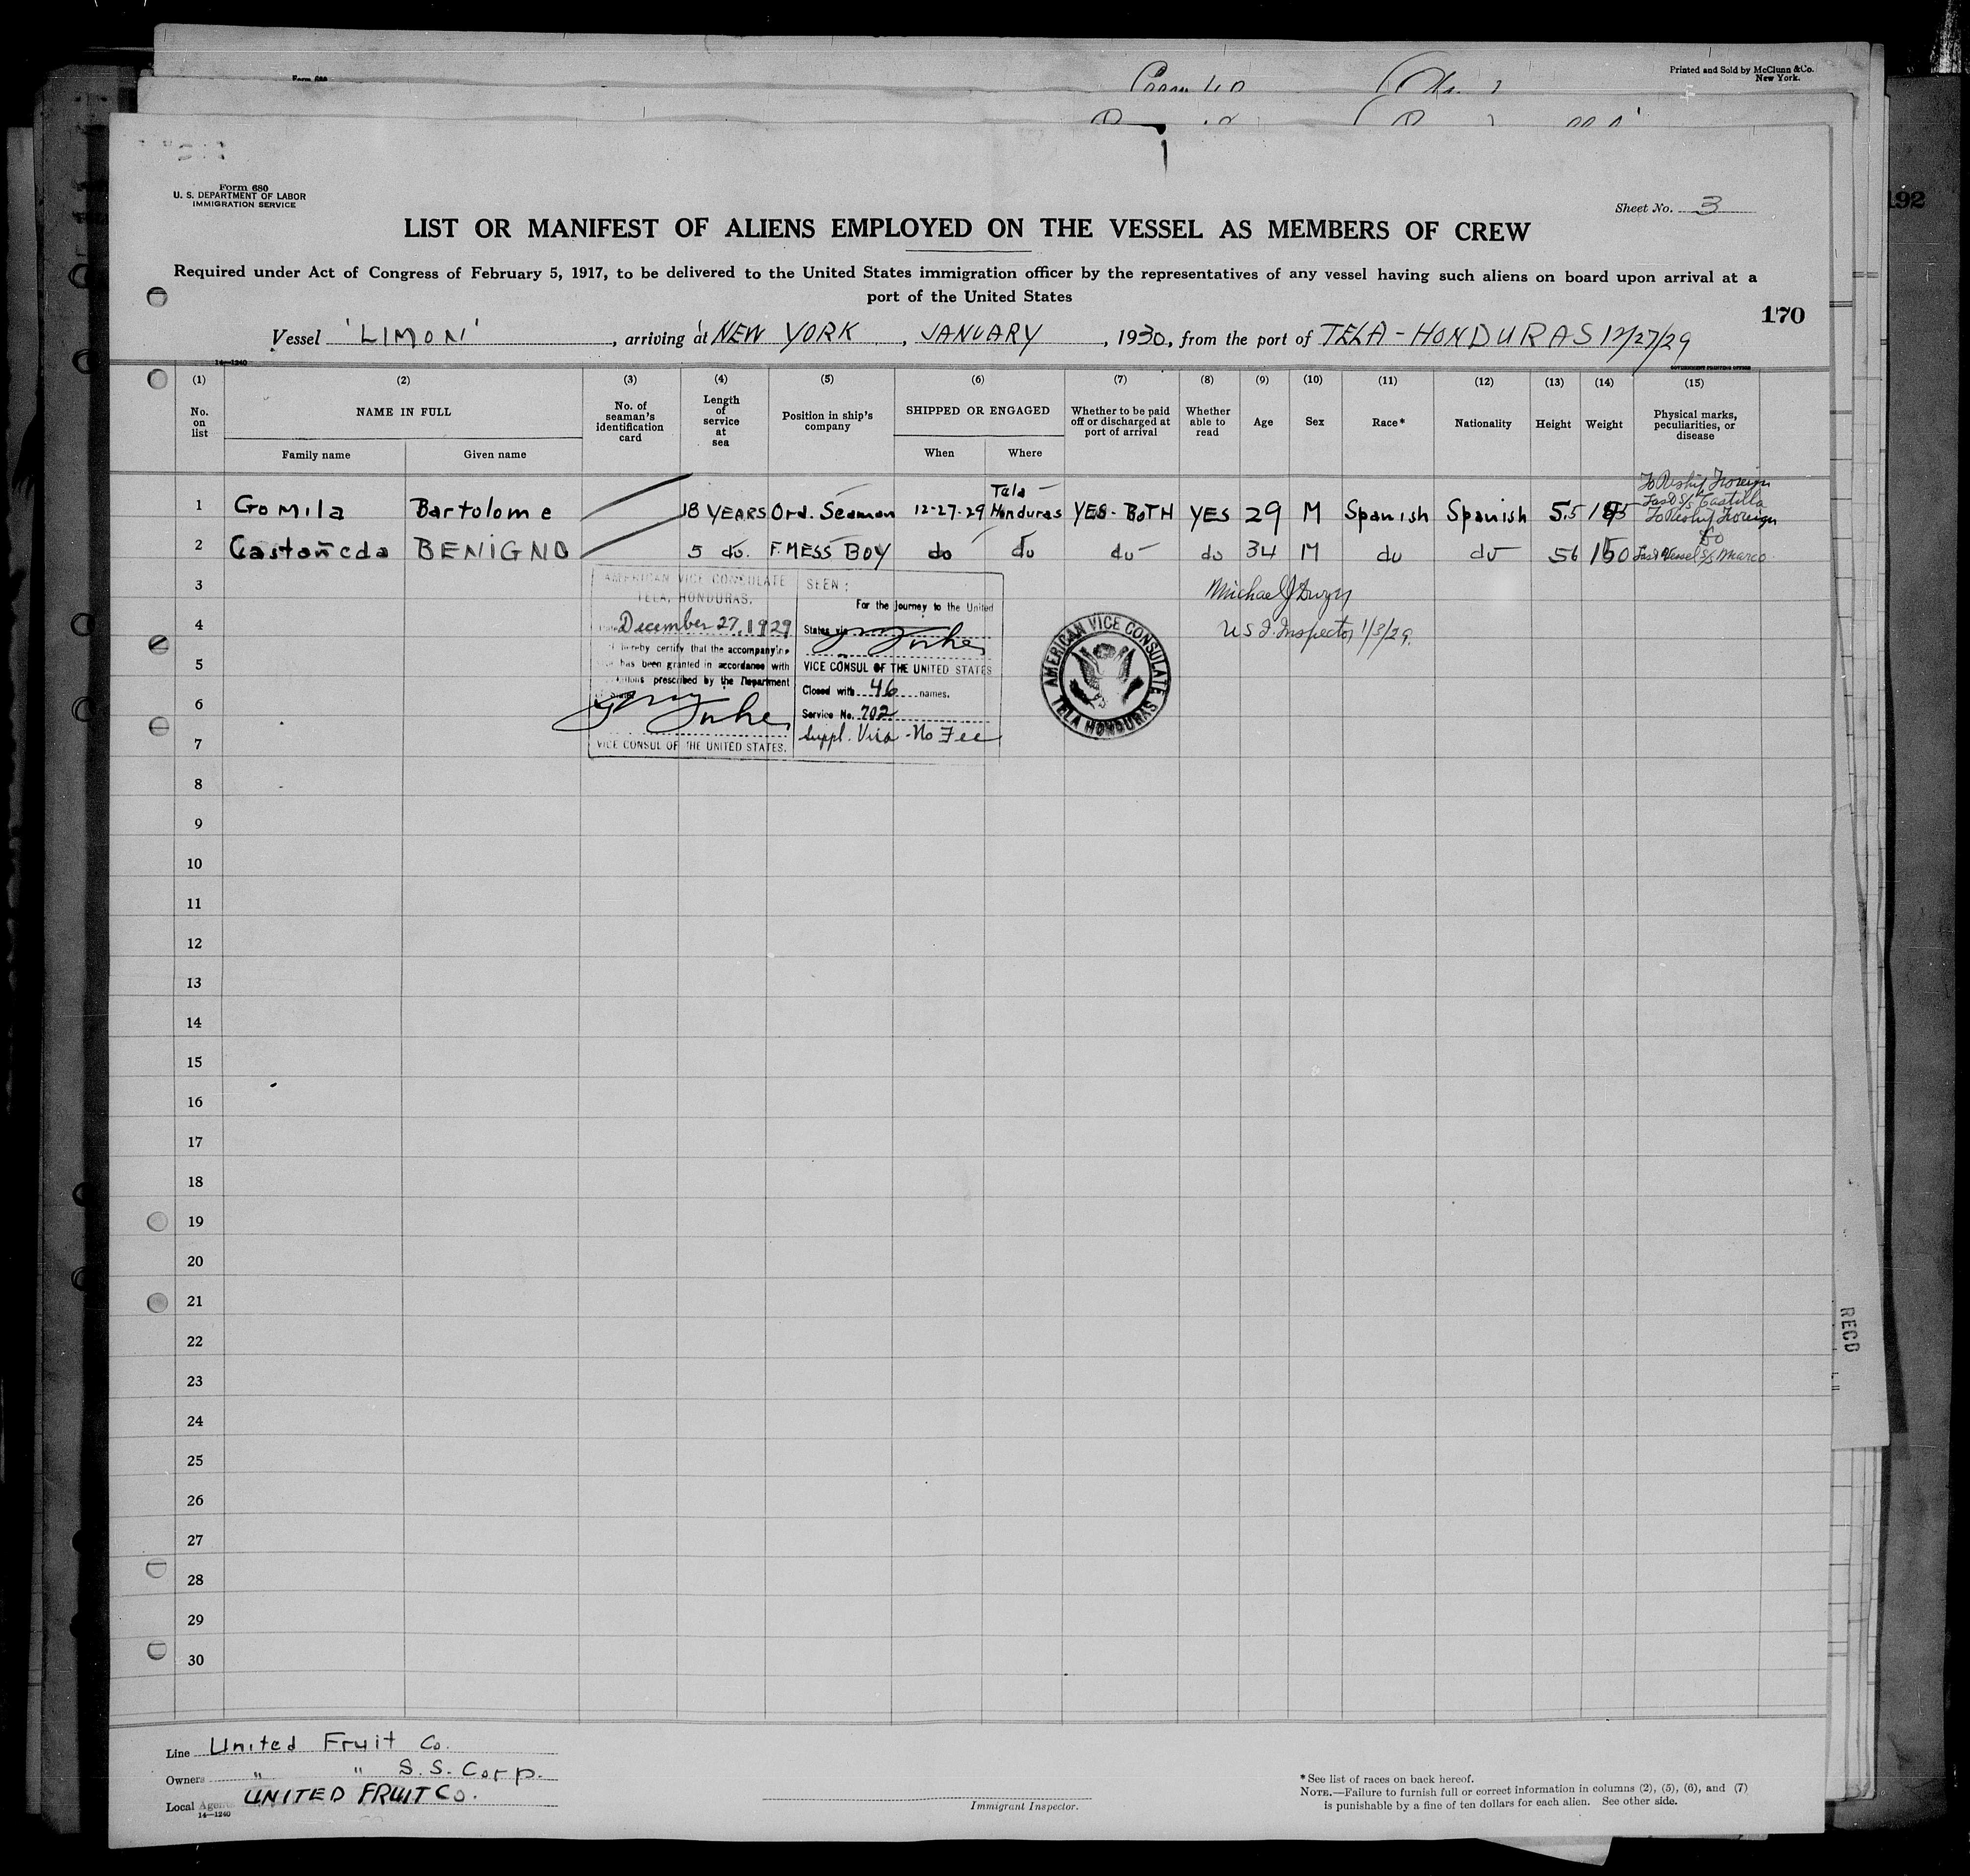 Form 680
Printed and Sold by McClunn & Co.
New York.
192
Form 680
U. S. DEPARTMENT OF LABOR
IMMIGRATION SERVICE
Sheet No. 3
LIST OR MANIFEST OF ALIENS EMPLOYED ON THE VESSEL AS MEMBERS OF CREW
Required under Act of Congress of February 5, 1917, to be delivered to the United States immigration officer by the representatives of any vessel having such aliens on board upon arrival at a
port of the United States
170
Vessel 'LIMON', arriving at NEW YORK, JANUARY, 1930, from the port of TELA - HONDURAS 12/27/29
14—1240
GOVERNMENT PRINTING OFFICE
(1) (2) (3) (4) (5) (6) (7) (8) (9) (10) (11) (12) (13) (14) (15)
No. on list
NAME IN FULL
Family name
Given name
No. of seaman's identification card
Length of service at sea
Position in ship's company
SHIPPED OR ENGAGED
When
Where
Whether to be paid off or discharged at port of arrival
Whether able to read
Age
Sex
Race*
Nationality
Height
Weight
Physical marks, peculiarities, or disease
1 Gomila Bartolome 18 YEARS Ord. Seaman 12-27-29 Tela - Honduras YES - BOTH YES 29 M Spanish Spanish 5.5 To Reship Foreign Last S/S Castilla
2 Castañeda BENIGNO 5 do. F. MESS BOY do do do do 34 M do do 56 150 To Reship Foreign do Last Vessel S/S
3
4
5
6
7
8
9
10
11
12
13
14
15
16
17
18
19
20
21
22
23
24
25
26
27
28
29
30
AMERICAN VICE CONSULATE
TELA, HONDURAS.
December 27, 1929
I hereby certify that the accompanying
has been granted in accordance with
prescribed by the Department
VICE CONSUL OF THE UNITED STATES.
SEEN:
For the journey to the United
States via
VICE CONSUL OF THE UNITED STATES
Closed with 46 names.
Service No. 702
Suppl. Visa - No Fee
AMERICAN VICE CONSULATE
TELA HONDURAS
Michael J Dwyer
U S I. Inspector 1/3/29.
RECD
Line United Fruit Co.
Owners " " S.S. Corp.
Local Agents UNITED FRUIT CO.
14—1240
Immigrant Inspector.
* See list of races on back hereof.
NOTE.—Failure to furnish full or correct information in columns (2), (5), (6), and (7)
is punishable by a fine of ten dollars for each alien. See other side.